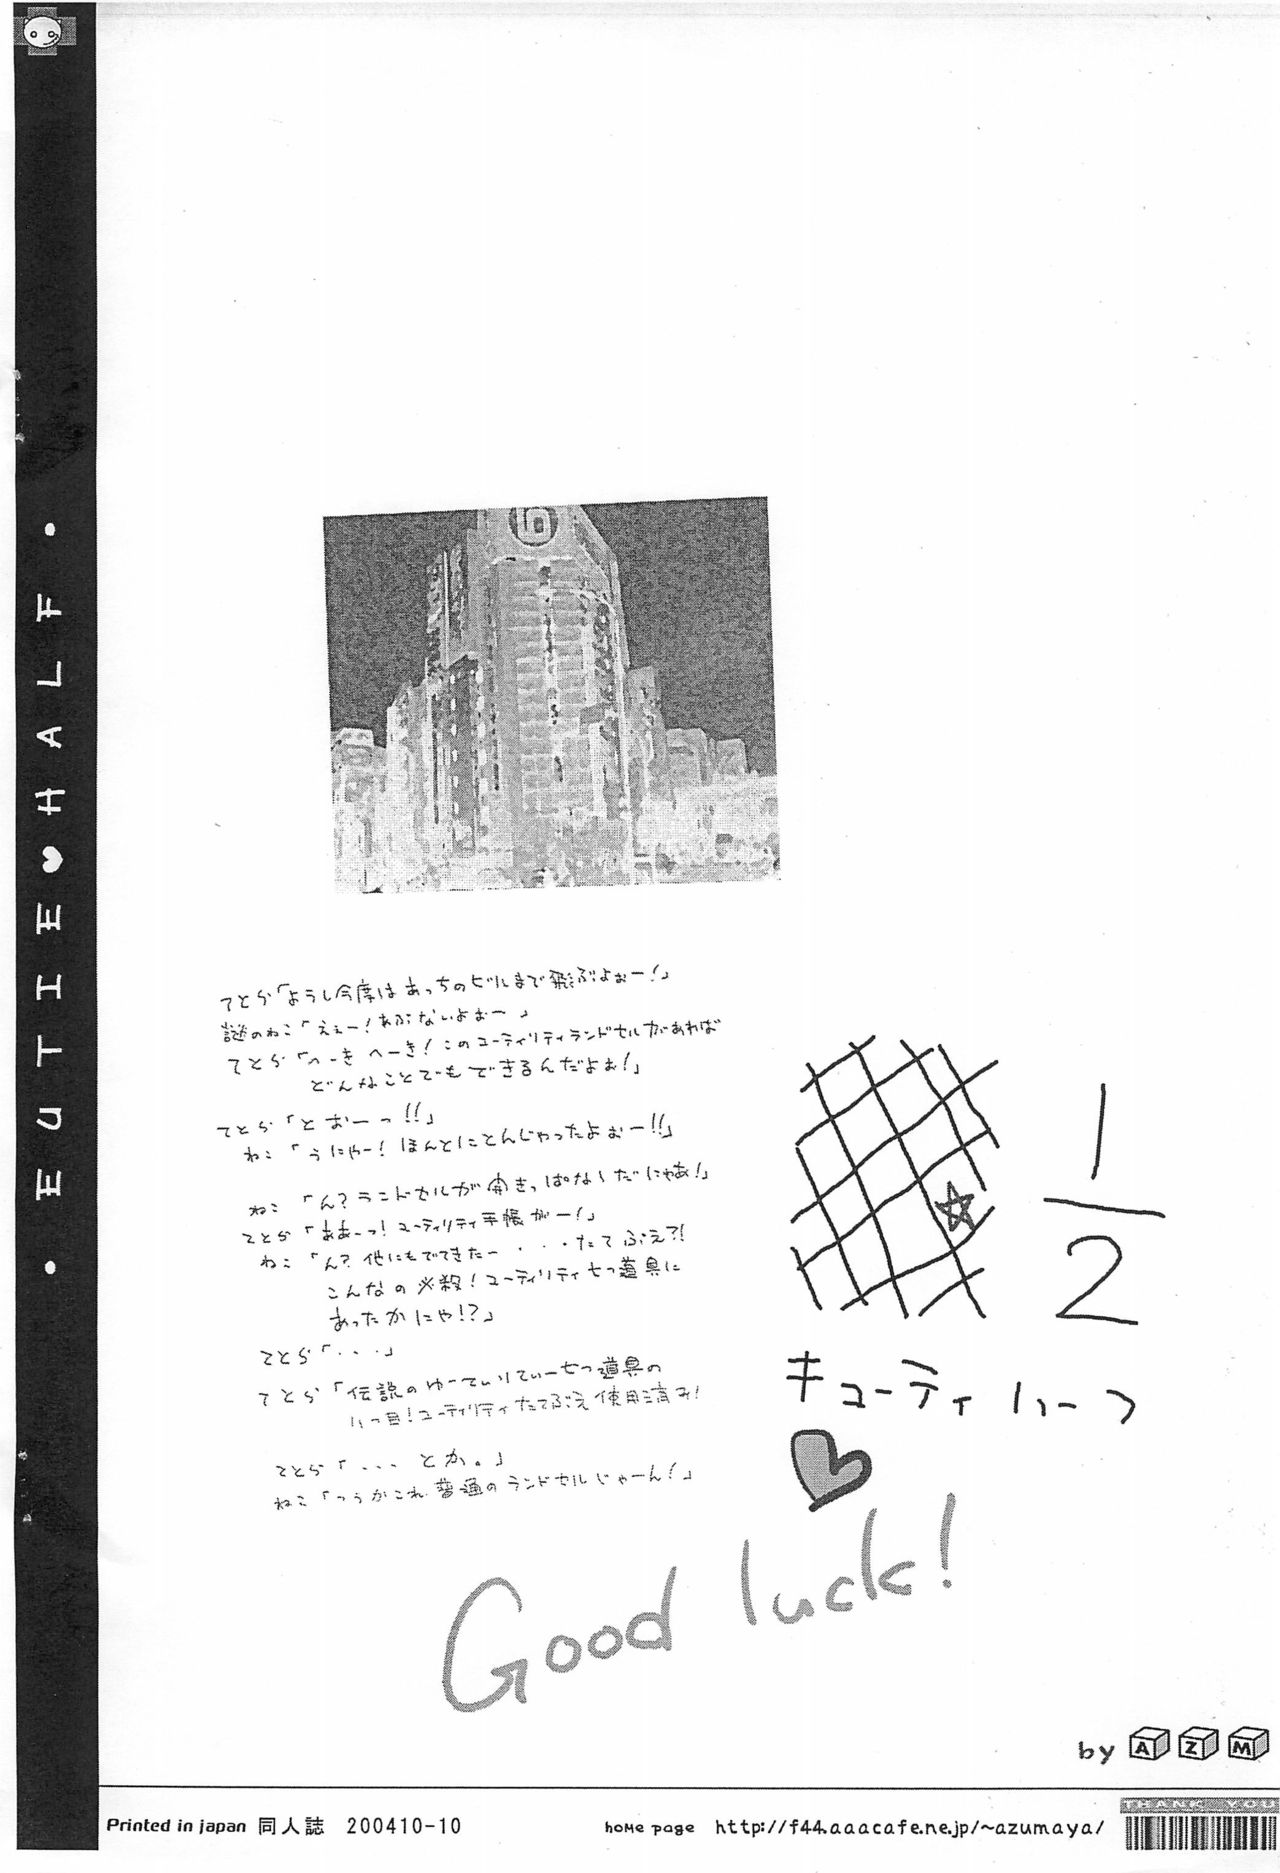 • EUTIE♥HALF •
6
てとら「ようし今度はあっちのビルまで飛ぶよぉー！」
謎のねこ「えぇー！あぶないよぉー」
てとら「へーき へーき！このユーティリティランドセルがあれば
どんなことでもできるんだよぉ！」
てとら「とおーっ!!」
ねこ「うにゃー！ほんとにとんじゃったよぉー!!」
ねこ「ん？ランドセルが開きっぱなしだにゃあ！」
てとら「ああーっ！ユーティリティ手帳がー！」
ねこ「ん？他にもでてきたー・・・たてぶえ?!
こんなの必殺！ユーティリティ七つ道具に
あったかにゃ!?」
てとら「・・・」
てとら「伝説のゆーてぃりてぃー七つ道具の
八つ目！ユーティリティたてぶえ使用済み！
てとら「... とか。」
ねこ「つうかこれ普通のランドセルじゃーん！」
1
2
キューティ ハーフ
Good luck!
by AZM
Printed in japan 同人誌 200410-10
hoMe page http://f44.aaacafe.ne.jp/~azumaya/
THANK YOU